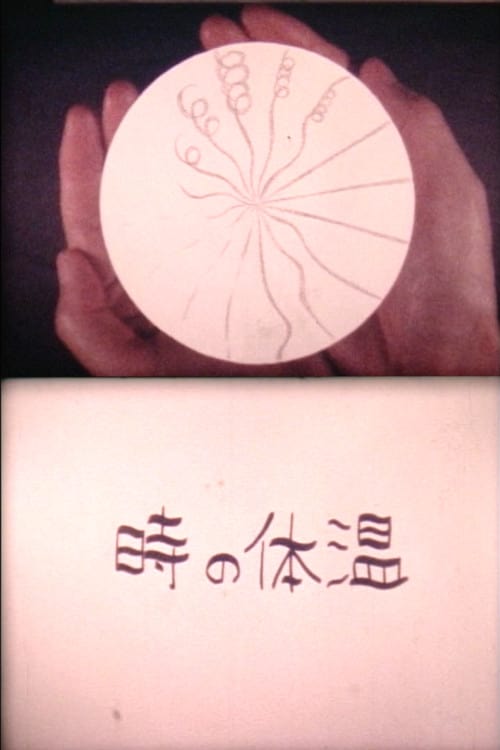 時の体温